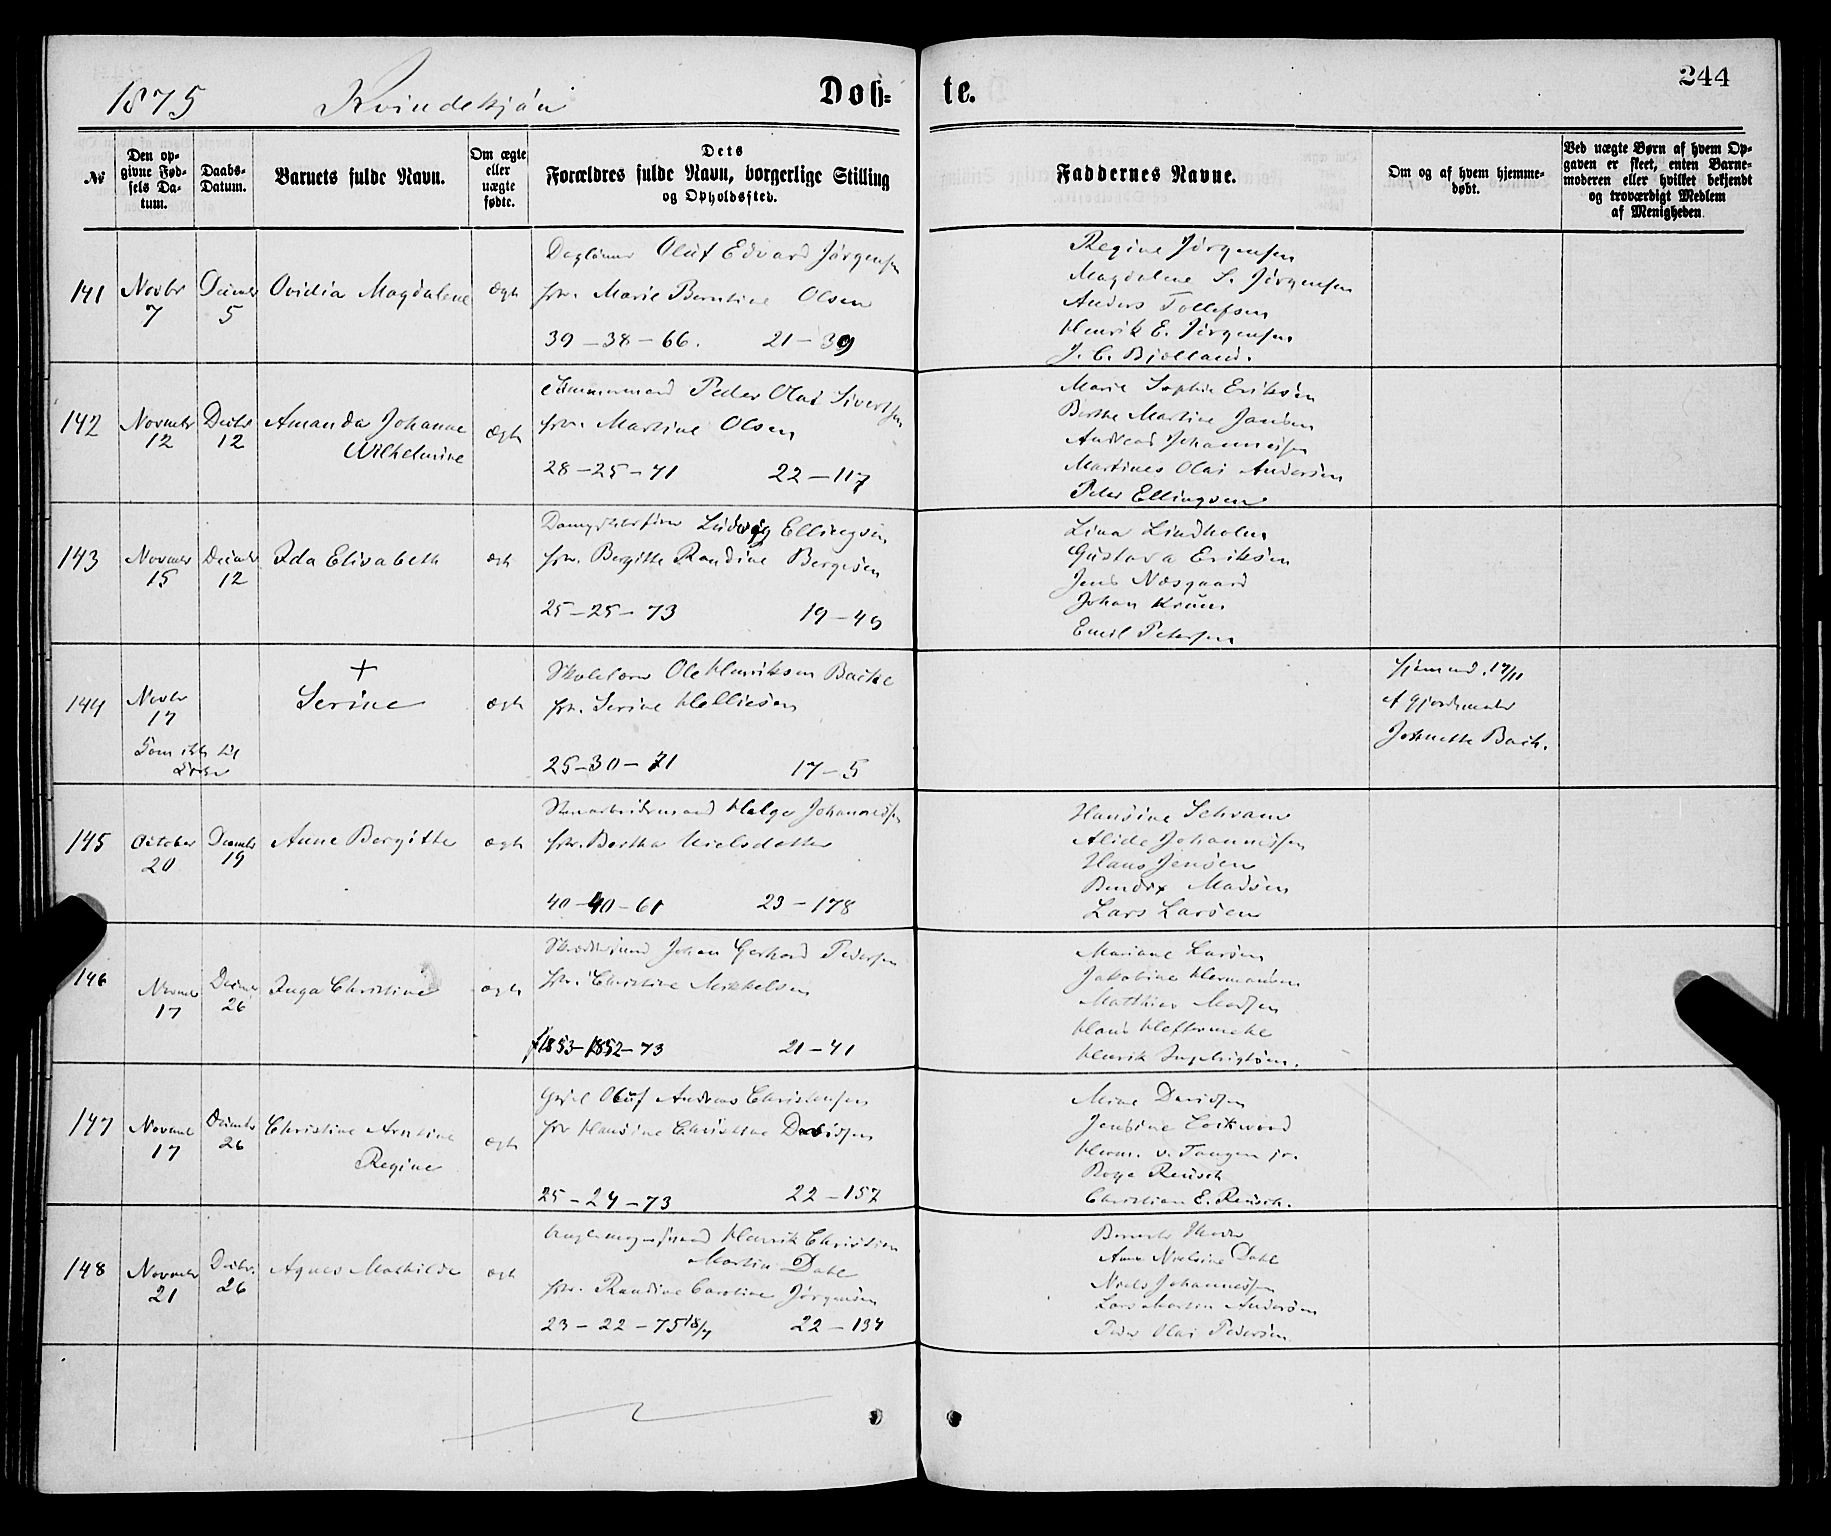 1875 Kvindekjøn Døb- te. 244
№
Den op-
givne Fød-
sels Da-
tum.
Daabs-
Datum.
Barnets fulde Navn.
Om ægte
eller
uægte
fødte.
Dets
Forældres fulde Navn, borgerlige Stilling
og Opholdssted.
Faddernes Navne.
Om og af hvem hjemme-
døbt.
Ved uægte Børn af hvem Op-
gaven er skeet, enten Barne-
moderen eller hvilket bekjendt
og troværdigt Medlem
af Menigheden.
141
Novbr
7
5
Ovidia Magdalene
ægte
Daglønner Oluf Edvard Jørgensen
Marie Berntine Olsen
39-38-66. 21-39
Regine Jørgensen
Magdalene S. Jørgensen
Anders Tollefsen
Henrik E. Jørgensen
J. C. Bjelland.
142
Novmbr
12
Decbr
12
Amanda Johanne
Wilhelmine
ægte
Tømmermand Peder Olai Sivertsen
Martine Olsen
28-25-71 22-117
Marie Sophie Eriksen
Berthe Martine Jansen
Andreas Johannesen
Martines Olai Andersen
Peter Ellingsen
143
Novmbr
15
Decmbr
12
Ida Elisabeth
ægte
Ludvig Ellingsen
Bergitte Randine Bergesen
25-25-73 19-49
Lina Lindholm
Gustava Eriksen
Jens Næsgaard
Johan
Emil Petersen
144
Novbr
17
Kom ikke til
Kirke
+
Serine
ægte
Skolelærer Ole Henriksen Backe
Serine Helliesen
25-30-71 17-5
Hjemmed. 17/11
af Gjordemoder
Jeanette Bach.
145
October
20
Decmbr
19
Anne Bergitte
ægte
Helge Johannessen
Berthe Nielsdatter
40-40-61 23-178
Hansine Schvans
Alide Johannessen
Hans Jensen
Bendix Madsen
Lars Larsen
146
Novmbr
17
Decmbr
26
Inga Christine
ægte
Johan Gerhard Pedersen
Christine Mikkelsen
1853-1852-73 21-41
Mariane Larsen
Jakobine Hermansen
Matthias Madsen
Hans
Henrik Ingebrigtsen.
147
Novmbr
17
Decmbr
26
Christine Arntine
Regine
ægte
Oluf Andreas Christensen
Hansine Christine Davidsen
25-24-73 22-157
Mine Davidsen
Jensine Lockwood
Herm. v. Tangen jr.
Reusch
Christian E. Reusch.
148
Novmbr
21
Decbr.
26
Agnes Mathilde
ægte
Henrik Christian
Martin Dahl
Randine Caroline Jørgensen
23-22-75 18/7 22-134
Anne Nicoline Dahl
Niels Johannessen
Lars Morten Andersen
Peder Olai Pedersen